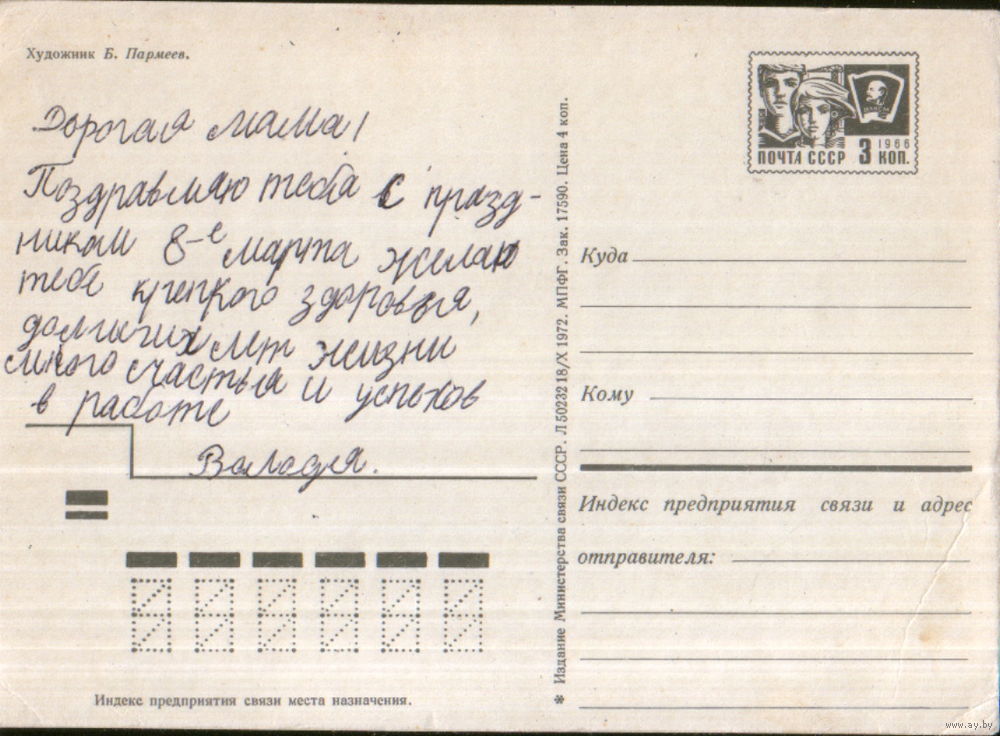 Художник Б. Пармеев.
Дорогая мама!
Поздравляю тебя с празд-
ником 8-е марта желаю
тебе крепкого здоровья,
долгих лет жизни
много счастья и успехов
в работе
Володя.
Индекс предприятия связи места назначения.
✻ Издание Министерства связи СССР. Л 5023218/X 1972. МПФГ. Зак. 17590. Цена 4 коп.
ВЛКСМ
ПОЧТА СССР 3 1966 КОП.
Куда
Кому
Индекс предприятия связи и адрес
отправителя:
www.ay.by